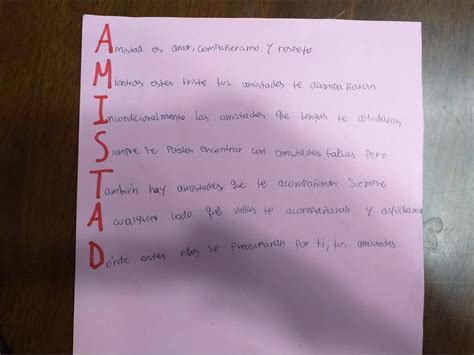 Amistad es amor, compañerismo y respeto
Mientras estes triste tus amistades te acompañaran
Incondicionalmente las amistades que tengas te ayudaran
Siempre te puedes encontrar con amistades falsas pero
También hay amistades que te acompañaran siempre
A cualquier lado que vallas te acompañaran y ayudaran
Dónde estes ellos se preocuparan por ti, tus amistades